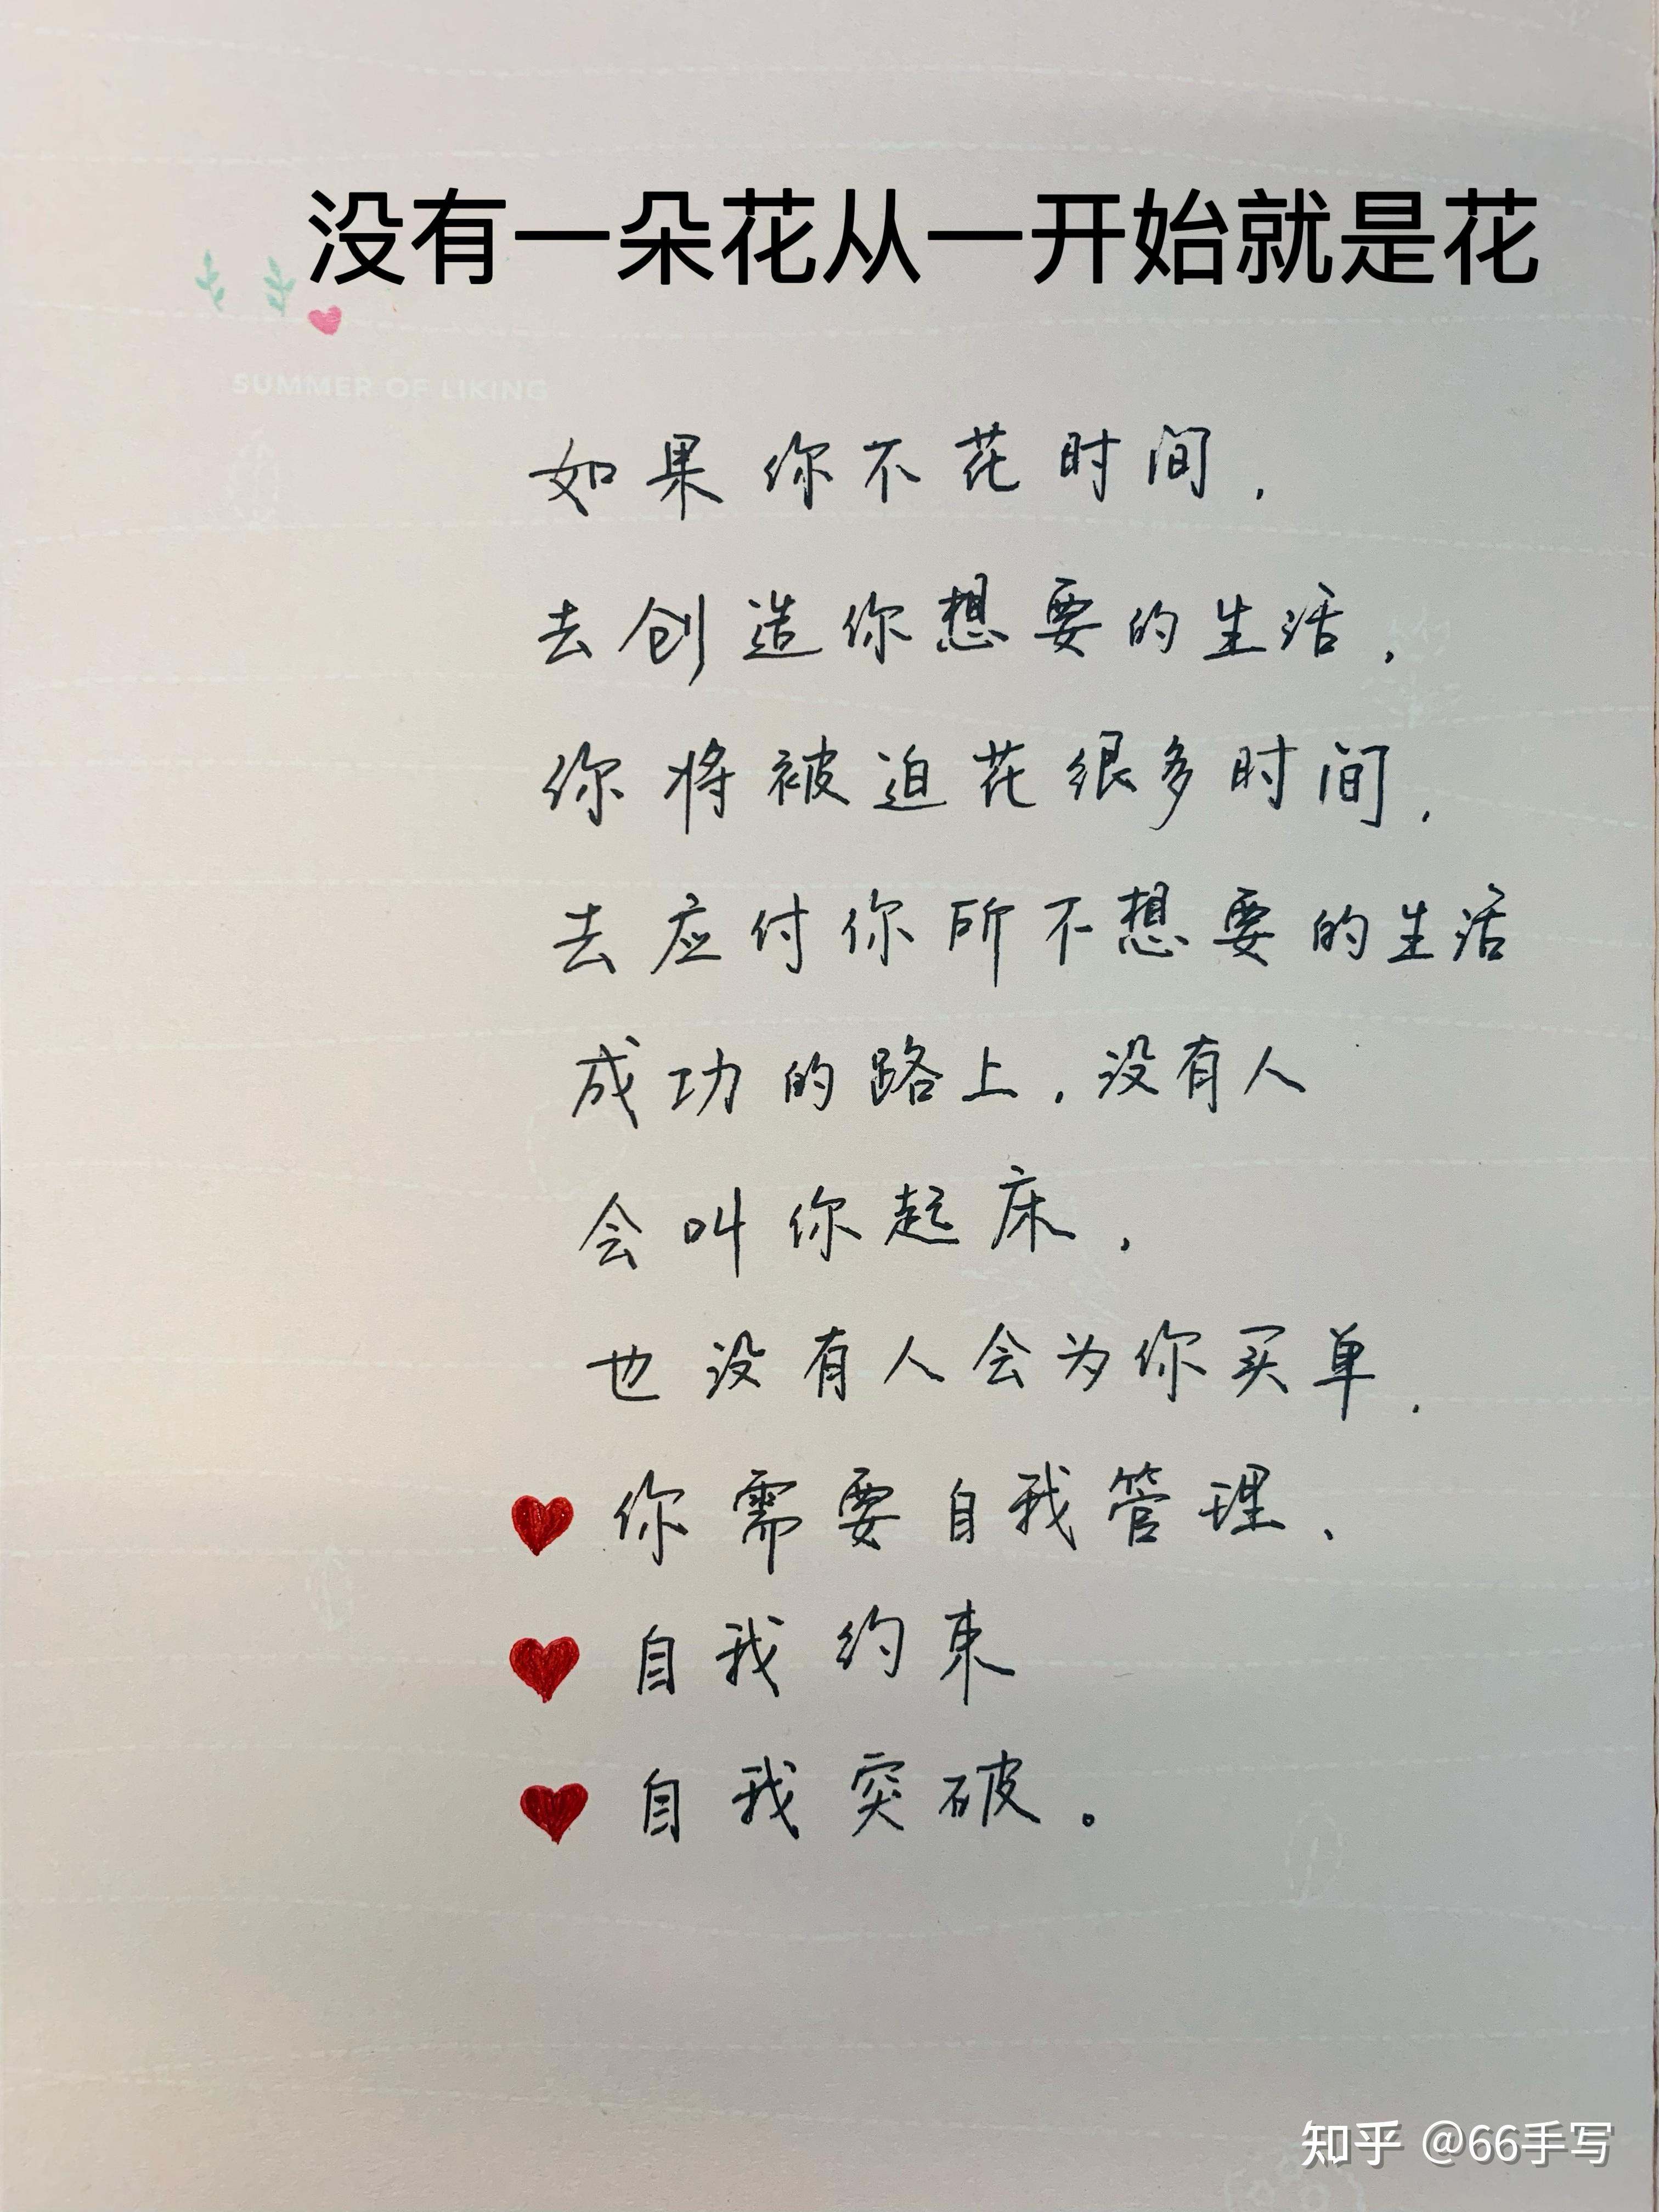 没有一朵花从一开始就是花
SUMMER OF LIKING
如果你不花时间，
去创造你想要的生活，
你将被迫花很多时间，
去应付你所不想要的生活
成功的路上，没有人
会叫你起床，
也没有人会为你买单，
你需要自我管理、
自我约束
自我突破。
知乎 @66手写